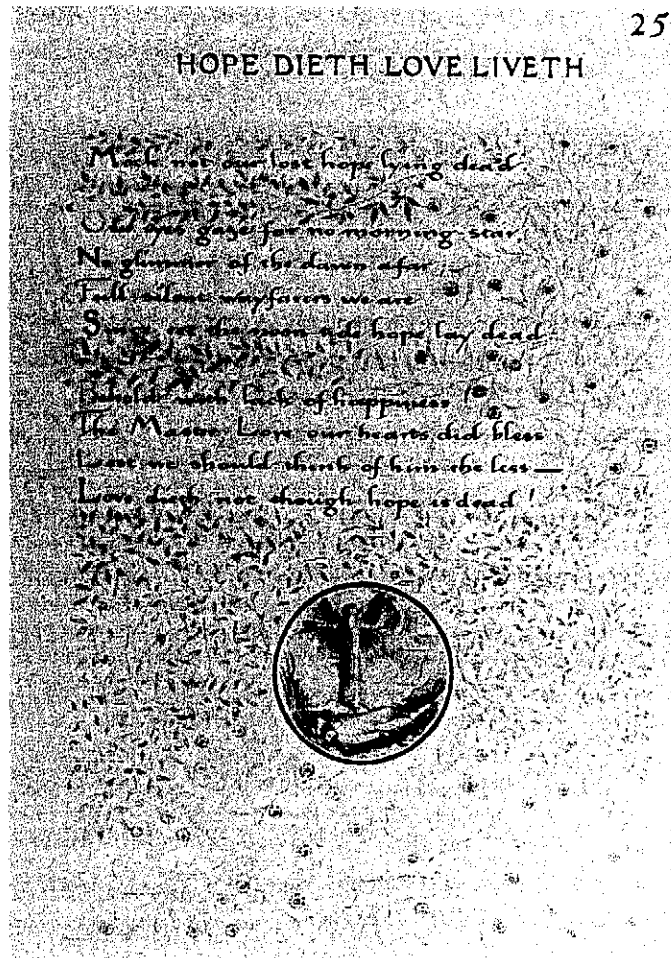 25
HOPE DIETH LOVE LIVETH
not our lost hope lying dead
eyes gaze for no morning star,
No glimmer of the dawn afar;
Full silent wayfarers we are
Since at the noon tide hope lay dead
Behold with lack of happiness
The Master Love our hearts did bless
Lest we should think of him the less —
Love dieth not though hope is dead!